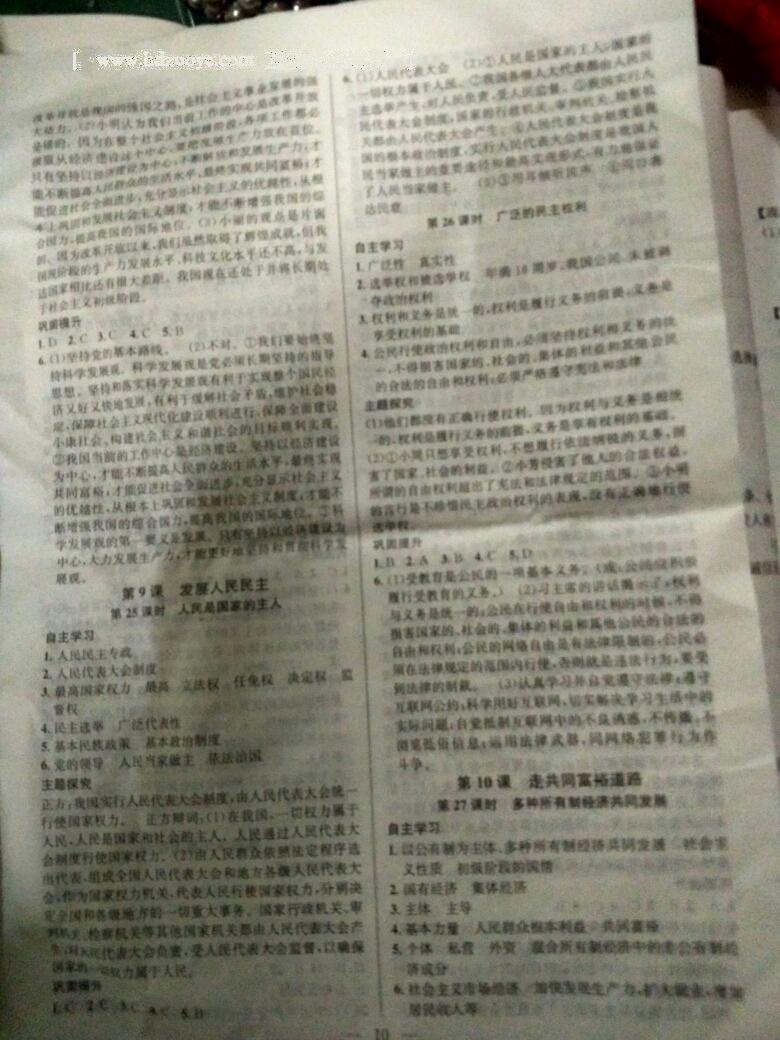 www.1dzuoye.com
改革开放是我国的强国之路,是社会主义事业发展的强
大动力。(2)小明认为我们当前工作的中心是改革开放
是错的。因为在整个社会主义初级阶段,各项工作都必
须服从经济建设这个中心,要把发展生产力放在首位。
只有坚持以经济建设为中心,不断解放和发展生产力,才
能不断提高人民群众的生活水平,最终实现共同富裕;才
能促进社会全面进步,充分显示社会主义的优越性,从根
本上巩固和发展社会主义制度,才能不断增强我国的综
合国力,提高我国的国际地位。(3)小丽的观点是片面
的。因为改革开放以来,我们虽然取得了辉煌成就,但我
国现阶段的生产力发展水平、科技文化水平还不高,与发
达国家相比还有很大差距。我国现在还处于并将长期处
于社会主义初级阶段。
巩固提升
1. D 2. C 3. C 4. C 5. B
6. (1)坚持党的基本路线。 (2)不对。①我们要始终坚
持科学发展观。科学发展观是党必须长期坚持的指导
思想。坚持和落实科学发展观有利于实现整个国民经
济又好又快地发展,有利于缓解社会矛盾,维护社会稳
定,保障社会主义现代化建设顺利进行,保障全面建设
小康社会、构建社会主义和谐社会的目标顺利实现。
②我国当前的工作中心是经济建设。坚持以经济建设
为中心,才能不断提高人民群众的生活水平,最终实现
共同富裕;才能促进社会全面进步,充分显示社会主义
的优越性,从根本上巩固和发展社会主义制度;才能不
断增强我国的综合国力,提高我国的国际地位。③科
学发展观的第一要义是发展。只有坚持以经济建设为
中心,大力发展生产力,才能更好地坚持和贯彻科学发
展观。
第 9 课 发展人民民主
第 25 课时 人民是国家的主人
自主学习
1. 人民民主专政
2. 人民代表大会制度
3. 最高国家权力 最高 立法权 任免权 决定权 监
督权
4. 民主选举 广泛代表性
5. 基本民族政策 基本政治制度
6. 党的领导 人民当家做主 依法治国
主题探究
正方:我国实行人民代表大会制度,由人民代表大会统一
行使国家权力。 正方辩词:(1)在我国,一切权力属于
人民,人民是国家和社会的主人。人民通过人民代表大
会制度行使国家权力。(2)由人民群众依照法定程序选
出代表,组成全国人民代表大会和地方各级人民代表大
会,作为国家权力机关,代表人民行使国家权力,分别决
定全国和各级地方的一切重大事务。国家行政机关、审
判机关、检察机关等其他国家机关都由人民代表大会产
生,对人民代表大会负责,受人民代表大会监督,以确保
国家的一切权力属于人民。
巩固提升
1. C 2. C 3. C 4. C 5. B
6. (1)人民代表大会 (2)①人民是国家的主人,国家的
一切权力属于人民。②我国各级人大代表都由人民民
主选举产生,对人民负责,受人民监督。③我国实行人
民代表大会制度,国家的行政机关、审判机关、检察机
关都由人民代表大会产生。④人民代表大会制度是我
国的根本政治制度,实行人民代表大会制度是我国人
民当家做主的重要途径和最高实现形式,有力地保证
了人民当家做主。
达民意
第 26 课时 广泛的民主权利
自主学习
1. 广泛性 真实性
2. 选举权和被选举权 年满 18 周岁、我国公民、未被剥
夺政治权利
3. 权利和义务是统一的,权利是履行义务的前提,义务是
享受权利的基础
4. 公民行使政治权利和自由,必须坚持权利和义务的统
一,不得损害国家的、社会的、集体的利益和其他公民
的合法的自由和权利;必须严格遵守宪法和法律
主题探究
(1)他们都没有正确行使权利。因为权利与义务是相统
一的,权利是履行义务的前提,义务是享有权利的基础。
(2)①小周只想享受权利,不想履行依法纳税的义务,损
害了国家、社会的利益。②小芳侵害了他人的合法权益,
所谓的自由权利超出了宪法和法律规定的范围。③小明
的言行是不珍惜民主政治权利的表现,没有正确地行使
选举权。
巩固提升
1. B 2. A 3. B 4. C 5. D
6. (1)受教育是公民的一项基本义务。(或:公民应积极
履行受教育的义务。) (2)习主席的讲话揭示了:权利
与义务是统一的;公民在行使自由和权利的时候,不得
损害国家的、社会的、集体的利益和其他公民的合法的
自由和权利;公民的网络自由是有法律限制的,公民必
须在法律规定的范围内行使,否则就是违法行为,要受
到法律的制裁。 (3)认真学习并自觉遵守法律;遵守
互联网公约;科学用好互联网,切实解决学习生活中的
实际问题;自觉抵制互联网中的不良诱惑,不传播、不
浏览低俗信息;运用法律武器,同网络犯罪行为作
斗争。
第 10 课 走共同富裕道路
第 27 课时 多种所有制经济共同发展
自主学习
1. 以公有制为主体、多种所有制经济共同发展 社会主
义性质 初级阶段的国情
2. 国有经济 集体经济
3. 主体 主导
4. 基本力量 人民群众根本利益 共同富裕
5. 个体 私营 外资 混合所有制经济中的非公有制经
济成分
6. 社会主义市场经济 加快发展生产力,扩大就业,增加
居民收入等
— 10 —